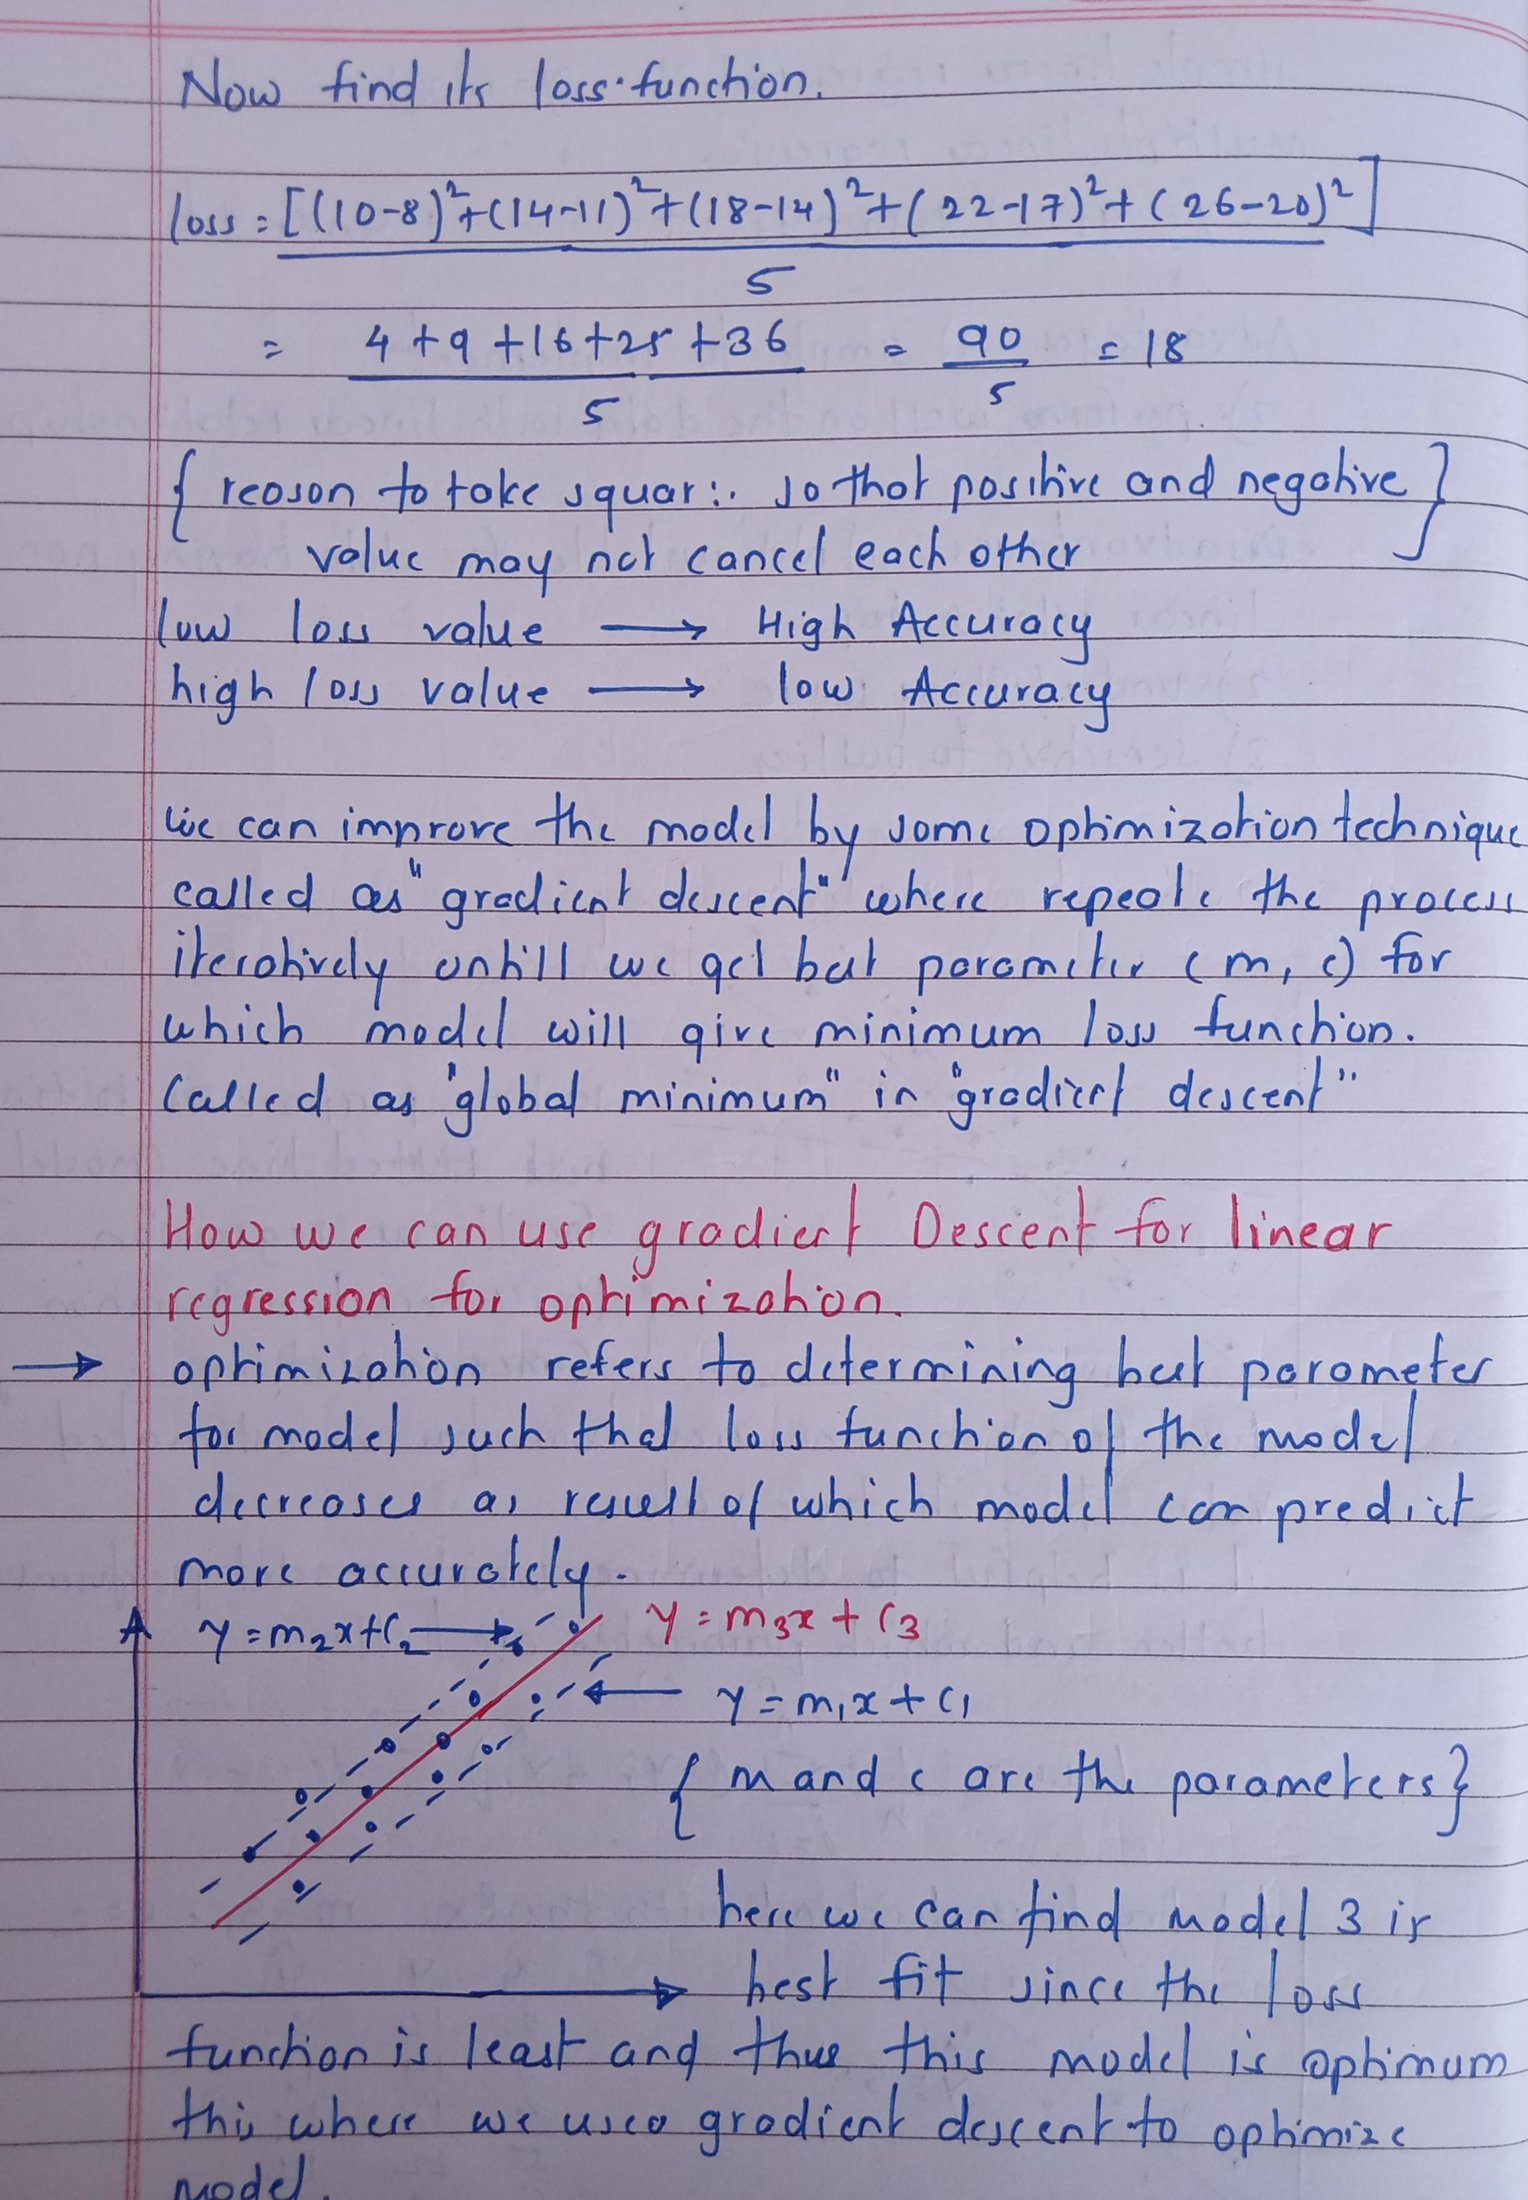 Now find its loss function.
loss = [(10-8)²+(14-11)²+(18-14)²+(22-17)²+(26-20)²]
5
= 4+9+16+25+36 = 90 = 18
5 5
{ reason to take squar:. so that positive and negative }
value may not cancel each other
low loss value → High Accuracy
high loss value → low Accuracy
we can improve the model by some optimization technique
called as "gradient descent" where repeate the process
iteratively untill we get best parameter (m, c) for
which model will give minimum loss function.
Called as "global minimum" in "gradient descent"
How we can use gradient Descent for linear
regression for optimization.
→ optimization refers to determining best parameter
for model such that loss function of the model
decreases as result of which model can predict
more accurately.
y=m₂x+c₂ → y=m₃x+c₃
← y=m₁x+c₁
{ m and c are the parameters }
here we can find model 3 is
best fit since the loss
function is least and thus this model is optimum
this where we used gradient descent to optimize
model.